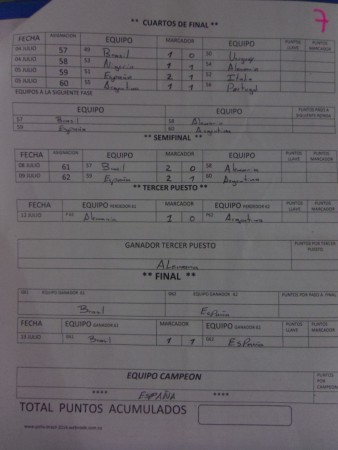 7
** CUARTOS DE FINAL **
FECHA ASIGNACION EQUIPO MARCADOR EQUIPO PUNTOS LLAVE PUNTOS MARCADOR
04 JULIO 57 Brasil 1 0
04 JULIO 58 53 Nigeria 1 1 Alemania
05 JULIO 59 España 2 1 Italia
05 JULIO 60 Argentina 1 1 Portugal
EQUIPOS A LA SIGUIENTE FASE
EQUIPO EQUIPO
57 Brasil 58 Alemania
59 España 60 Argentina
** SEMIFINAL **
FECHA ASIGNACION EQUIPO MARCADOR EQUIPO PUNTOS LLAVE PUNTOS MARCADOR
08 JULIO 61 57 Brasil 2 0 58 Alemania
09 JULIO 62 España 2 1 Argentina
** TERCER PUESTO **
FECHA EQUIPO PERDEDOR 61 MARCADOR EQUIPO PERDEDOR 62 PUNTOS LLAVE PUNTOS MARCADOR
12 JULIO Alemania 1 0 Argentina
GANADOR TERCER PUESTO PUNTOS POR TERCER PUESTO
Alemania
** FINAL **
EQUIPO GANADOR 61 EQUIPO GANADOR 62 PUNTOS POR PASO A FINAL
Brasil España
FECHA EQUIPO GANADOR 61 MARCADOR EQUIPO GANADOR 62 PUNTOS LLAVE PUNTOS MARCADOR
Brasil 1 2 ESPAÑA
EQUIPO CAMPEON PUNTOS POR CAMPEON
**** ESPAÑA ****
TOTAL PUNTOS ACUMULADOS